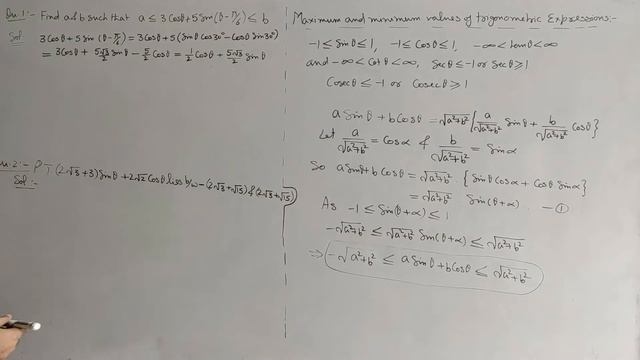 Qu.1:- Find a & b such that a ≤ 3 Cosθ + 5 Sin(θ-π/6) ≤ b
Sol
3 Cosθ + 5 Sin(θ-π/6) = 3 Cosθ + 5 (Sinθ Cos30° - Cosθ Sin30°)
= 3 Cosθ + 5√3/2 Sinθ - 5/2 Cosθ = 1/2 Cosθ + 5√3/2 Sinθ
Qu.2:- P T (2√3+3) Sinθ + 2√2 Cosθ lies b/w -(2√3+√15) & (2√3+√15)
Sol:-
Maximum and minimum values of trigonometric Expressions:-
-1 ≤ Sinθ ≤ 1, -1 ≤ Cosθ ≤ 1, -∞ < tanθ < ∞
and -∞ < Cotθ < ∞, Secθ ≤ -1 or Secθ ≥ 1
Cosecθ ≤ -1 or Cosecθ ≥ 1
a Sinθ + b Cosθ = √a²+b² { a/√a²+b² Sinθ + b/√a²+b² Cosθ }
Let a/√a²+b² = Cosα & b/√a²+b² = Sinα
So a Sinθ + b Cosθ = √a²+b² { Sinθ Cosα + Cosθ Sinα }
= √a²+b² Sin(θ+α) - ①
As -1 ≤ Sin(θ+α) ≤ 1
-√a²+b² ≤ √a²+b² Sin(θ+α) ≤ √a²+b²
⇒ -√a²+b² ≤ a Sinθ + b Cosθ ≤ √a²+b²